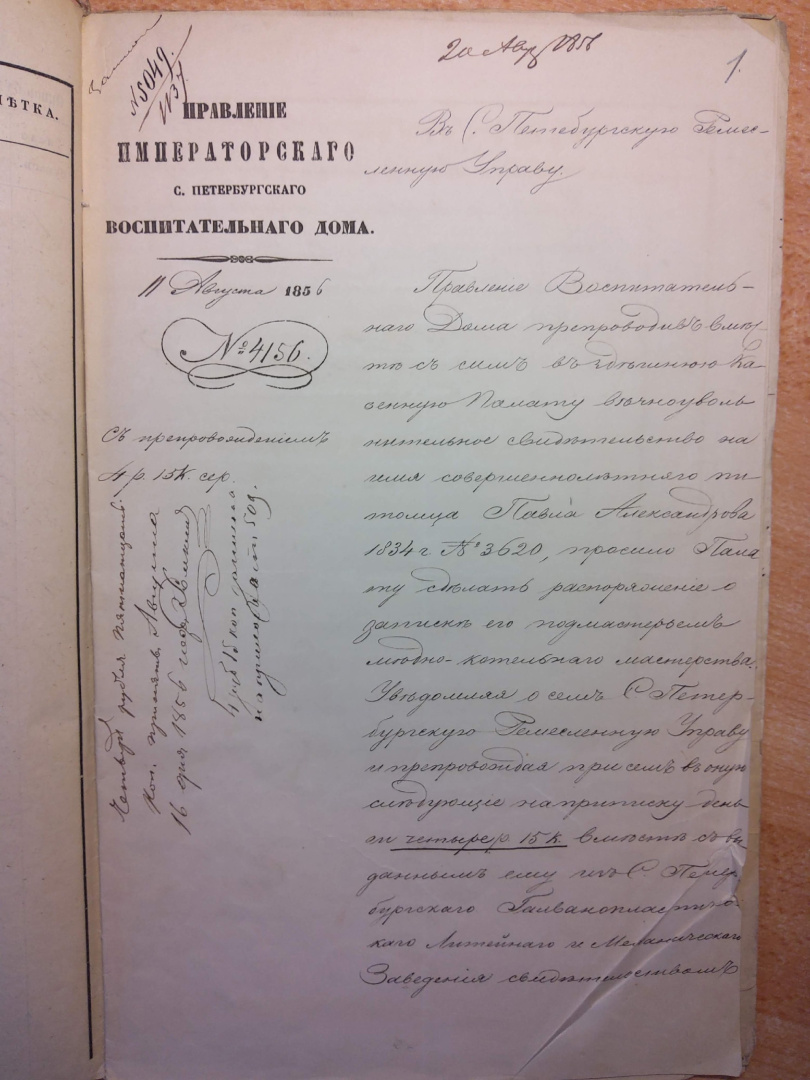 МѢТКА.
20 Авг 1856
1.
№5049
ПРАВЛЕНІЕ
ИМПЕРАТОРСКАГО
С. ПЕТЕРБУРГСКАГО
ВОСПИТАТЕЛЬНАГО ДОМА.
11 Августа 1856
№4156.
Съ препровожденіемъ
4 р. 15 к. сер.
Четыре рубля пятнадцать
коп. принялъ Августа
16 дня 1856 года
4 руб 15 коп
на приходъ 509.
Въ С. Петебургскую Ремес-
ленную Управу.
Правленіе Воспитатель-
наго Дома препроводивъ вмѣс-
тѣ съ симъ въ здѣшнюю Ка-
зенную Палату вѣчноуволь
нительное свидѣтельство на
имя совершеннолѣтняго пи
томца Павла Александрова
1834 г № 3620, просило Пала
ту сдѣлать распоряженіе о
запискѣ его подмастерьемъ
мѣдно-котельнаго мастерства.
Увѣдомляя о семъ С Петер-
бургскую Ремесленную Управу
и препровождая при семъ въ оную
слѣдующіе на приписку день
ги четыре р. 15 к. вмѣстѣ съ вы
даннымъ ему изъ С Петер
бургскаго Гальванопластичес-
каго Литейнаго и Механическаго
Заведенія свидѣтельствомъ